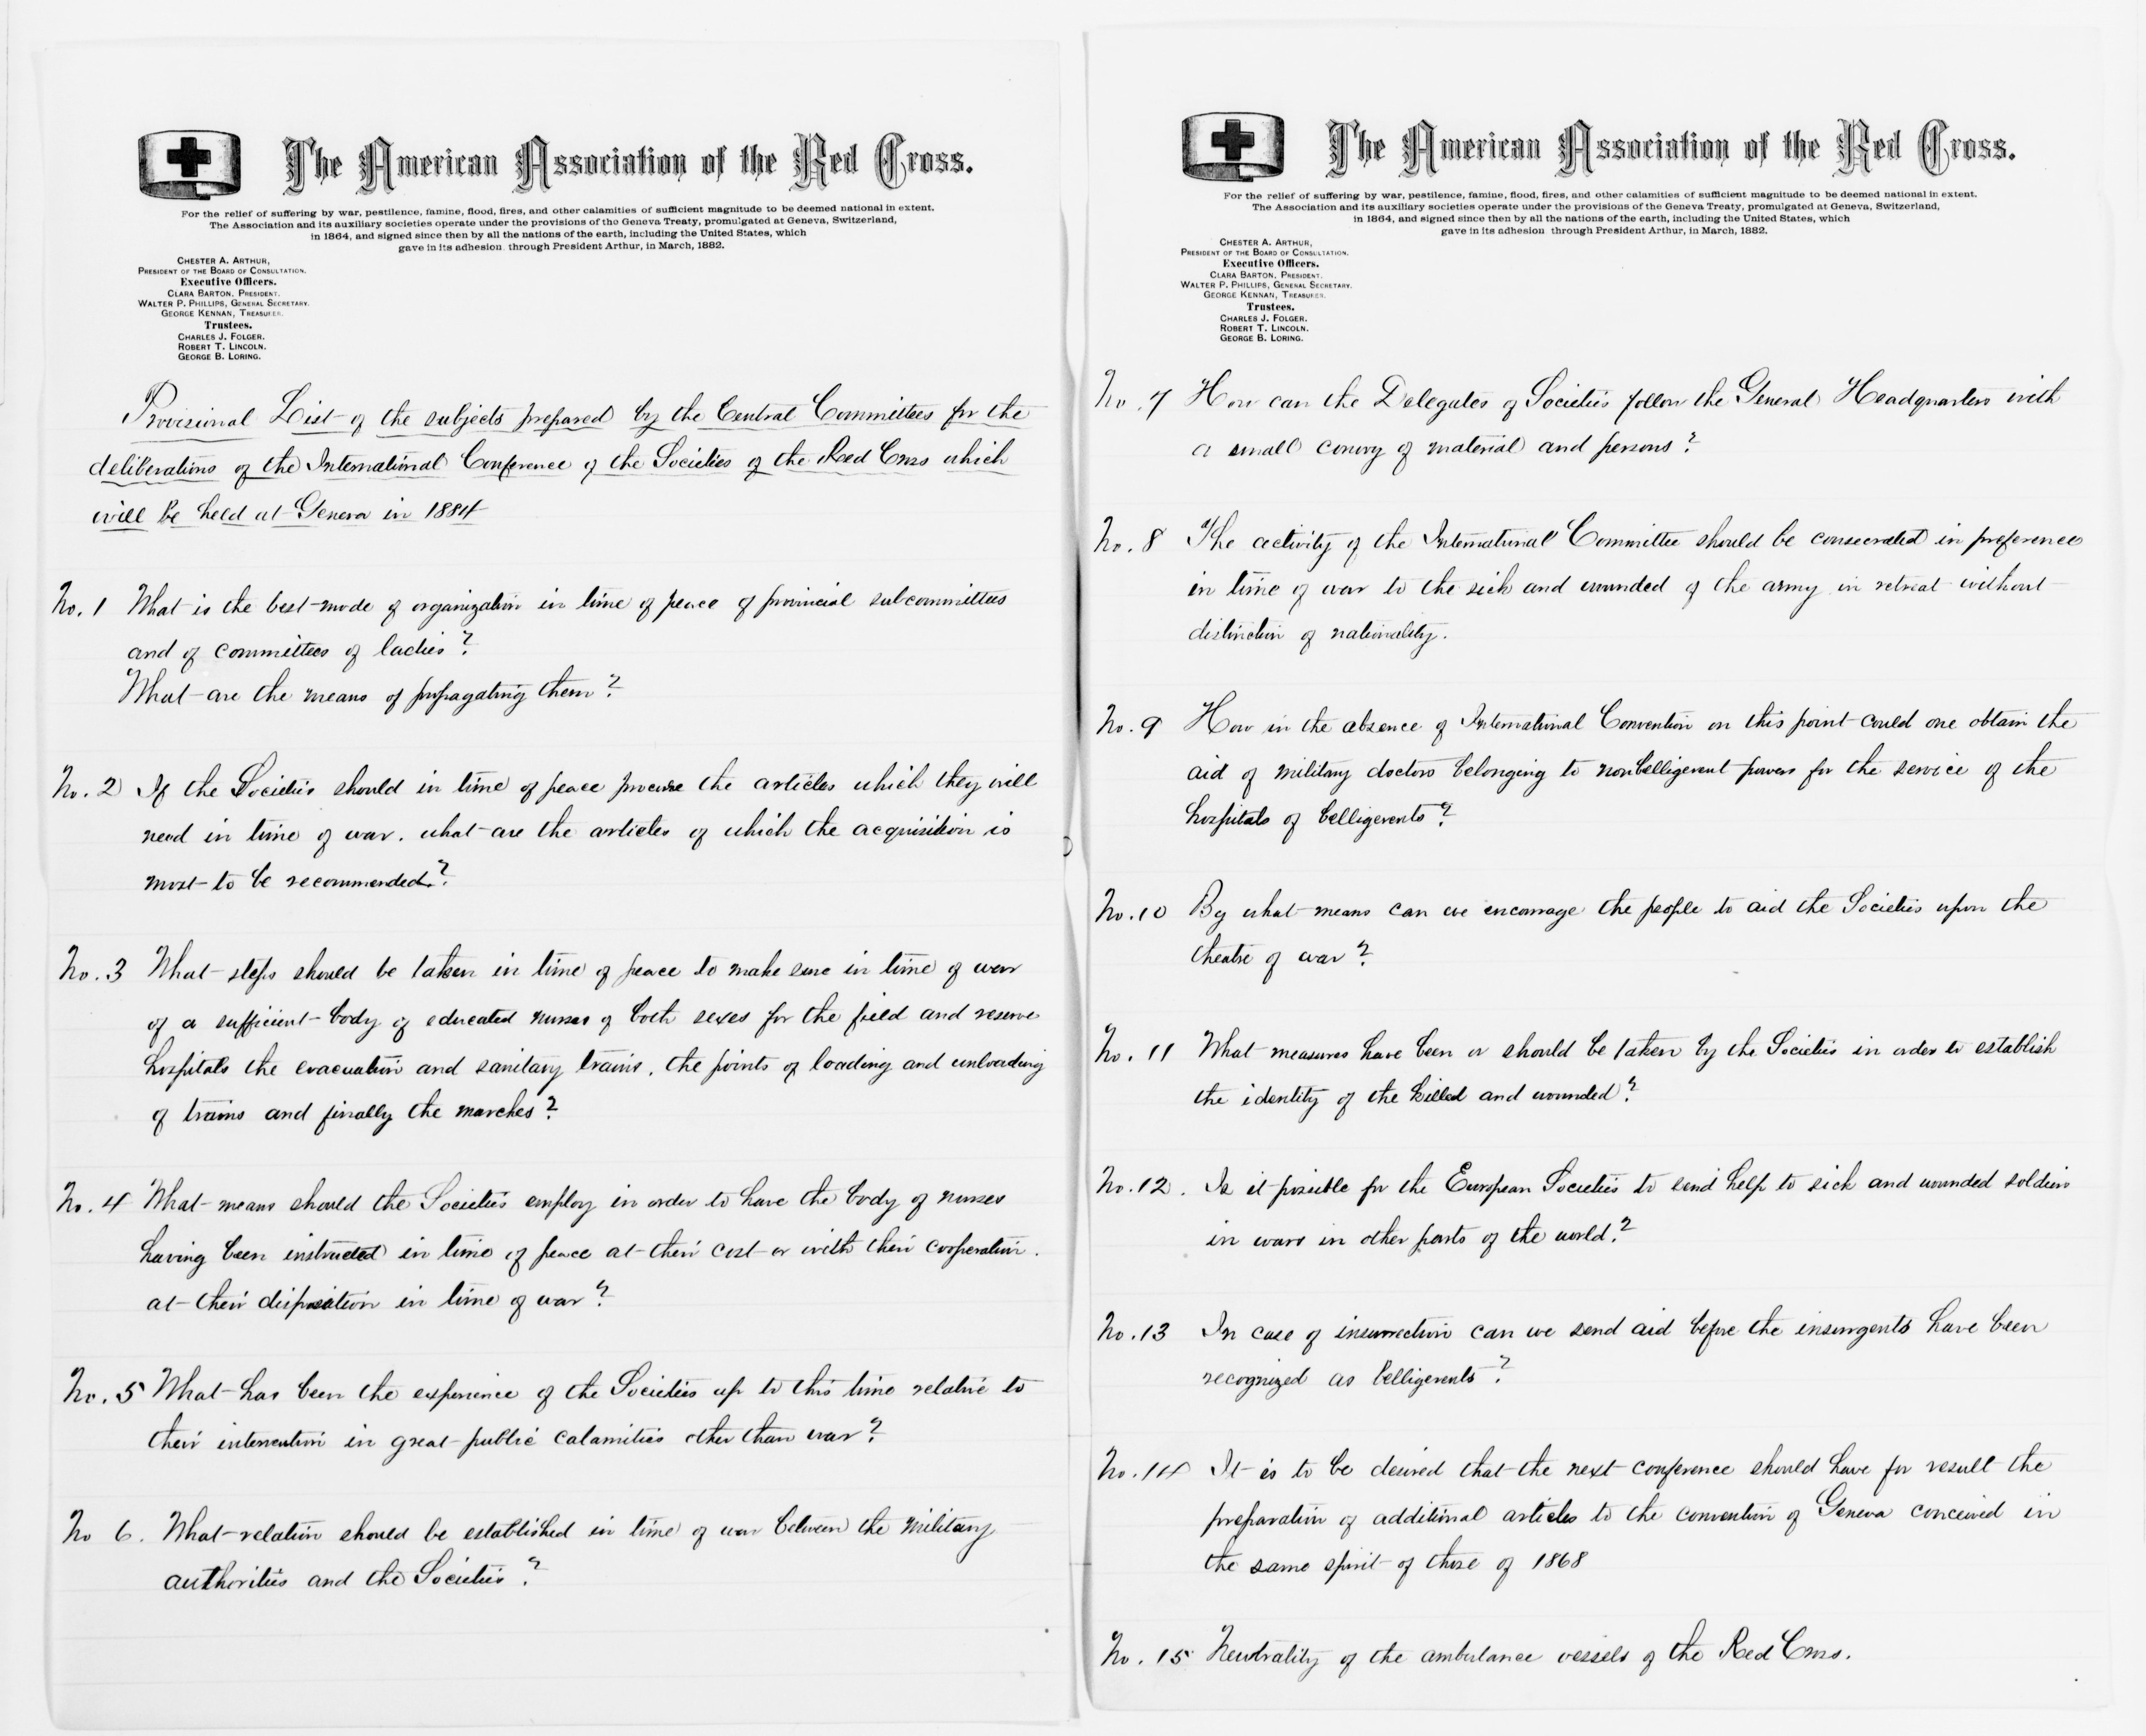 The American Association of the Red Cross.
For the relief of suffering by war, pestilence, famine, flood, fires, and other calamities of sufficient magnitude to be deemed national in extent.
The Association and its auxiliary societies operate under the provisions of the Geneva Treaty, promulgated at Geneva, Switzerland,
in 1864, and signed since then by all the nations of the earth, including the United States, which
gave in its adhesion through President Arthur, in March, 1882.
CHESTER A. ARTHUR,
PRESIDENT OF THE BOARD OF CONSULTATION.
Executive Officers.
CLARA BARTON, PRESIDENT.
WALTER P. PHILLIPS, GENERAL SECRETARY.
GEORGE KENNAN, TREASURER.
Trustees.
CHARLES J. FOLGER.
ROBERT T. LINCOLN.
GEORGE B. LORING.
Provisional List of the subjects prepared by the Central Committees for the
deliberations of the International Conference of the Societies of the Red Cross which
will be held at Geneva in 1884
No. 1 What is the best mode of organization in time of peace of provincial subcommittees
and of committees of ladies?
What are the means of propagating them?
No. 2 If the Societies should in time of peace procure the articles which they will
need in time of war. what are the articles of which the acquisition is
most to be recommended.?
No. 3 What steps should be taken in time of peace to make sure in time of war
of a sufficient body of educated nurses of both sexes for the field and reserve
hospitals the evacuation and sanitary trains, the points of loading and unloading
of trains and finally the marches?
No. 4 What means should the Societies employ in order to have the body of nurses
having been instructed in time of peace at their cost or with their cooperation.
at their disposition in time of war?
No. 5 What has been the experience of the Societies up to this time relative to
their intervention in great public calamities other than war?
No 6. What relation should be established in time of war between the military
authorities and the Societies?
The American Association of the Red Cross.
For the relief of suffering by war, pestilence, famine, flood, fires, and other calamities of sufficient magnitude to be deemed national in extent.
The Association and its auxiliary societies operate under the provisions of the Geneva Treaty, promulgated at Geneva, Switzerland,
in 1864, and signed since then by all the nations of the earth, including the United States, which
gave in its adhesion through President Arthur, in March, 1882.
CHESTER A. ARTHUR,
PRESIDENT OF THE BOARD OF CONSULTATION.
Executive Officers.
CLARA BARTON, PRESIDENT.
WALTER P. PHILLIPS, GENERAL SECRETARY.
GEORGE KENNAN, TREASURER.
Trustees.
CHARLES J. FOLGER.
ROBERT T. LINCOLN.
GEORGE B. LORING.
No. 7 How can the Delegates of Societies follow the General Headquarters with
a small convoy of material and persons?
No. 8 The activity of the International Committee should be consecrated in preference
in time of war to the sick and wounded of the army in retreat without
distinction of nationality.
No. 9 How in the absence of International Convention on this point could one obtain the
aid of military doctors belonging to nonbelligerent powers for the service of the
hospitals of belligerents?
No. 10 By what means can we encourage the people to aid the Societies upon the
theatre of war?
No. 11 What measures have been or should be taken by the Societies in order to establish
the identity of the killed and wounded?
No. 12. Is it possible for the European Societies to send help to sick and wounded soldiers
in wars in other parts of the world.?
No. 13 In case of insurrection can we send aid before the insurgents have been
recognized as belligerents?
No. 14 It is to be desired that the next conference should have for result the
preparation of additional articles to the convention of Geneva conceived in
the same spirit of those of 1868
No. 15 Neutrality of the ambulance vessels of the Red Cross.